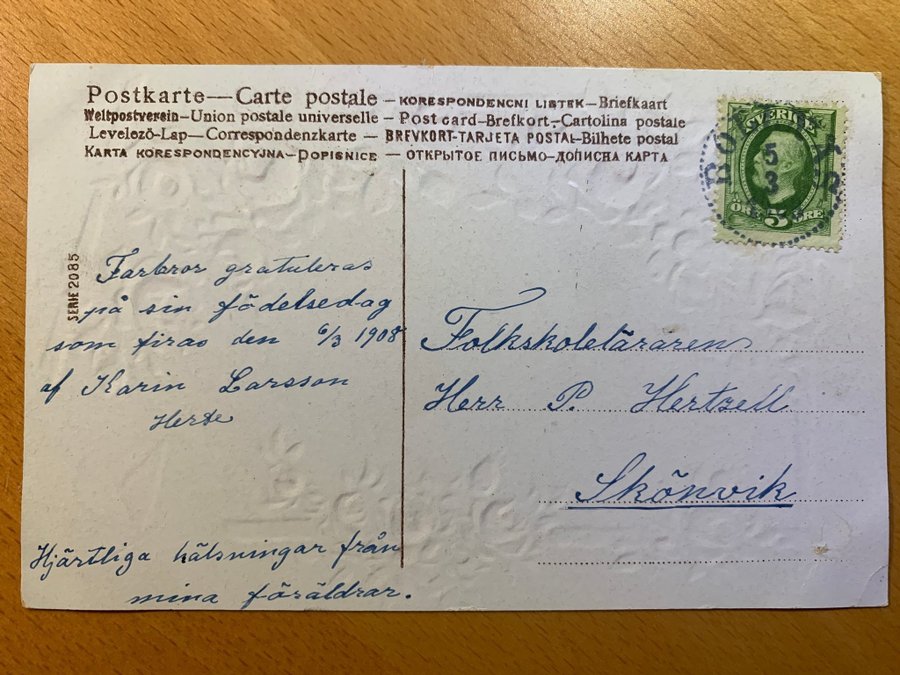 Postkarte—Carte postale – KORESPONDENCNI LISTEK—Briefkaart
Weltpostverein—Union postale universelle – Post card—Brefkort—Cartolina postale
Levelező-Lap—Correspondenzkarte – BREVKORT-TARJETA POSTAL—Bilhete postal
KARTA KORESPONDENCYJNA—DOPISNICE – ОТКРЫТОЕ ПИСЬМО—ДОПИСНА КАРТА
SVERIGE
5
3
ÖRE 5 ÖRE
SERIE 2085
Farbror gratuleras
på sin födelsedag
som firas den 6/3 1908
af Karin Larsson
Hjärtliga hälsningar från
mina föräldrar.
Folkskoleläraren
Herr P. Hertzell
Skönvik